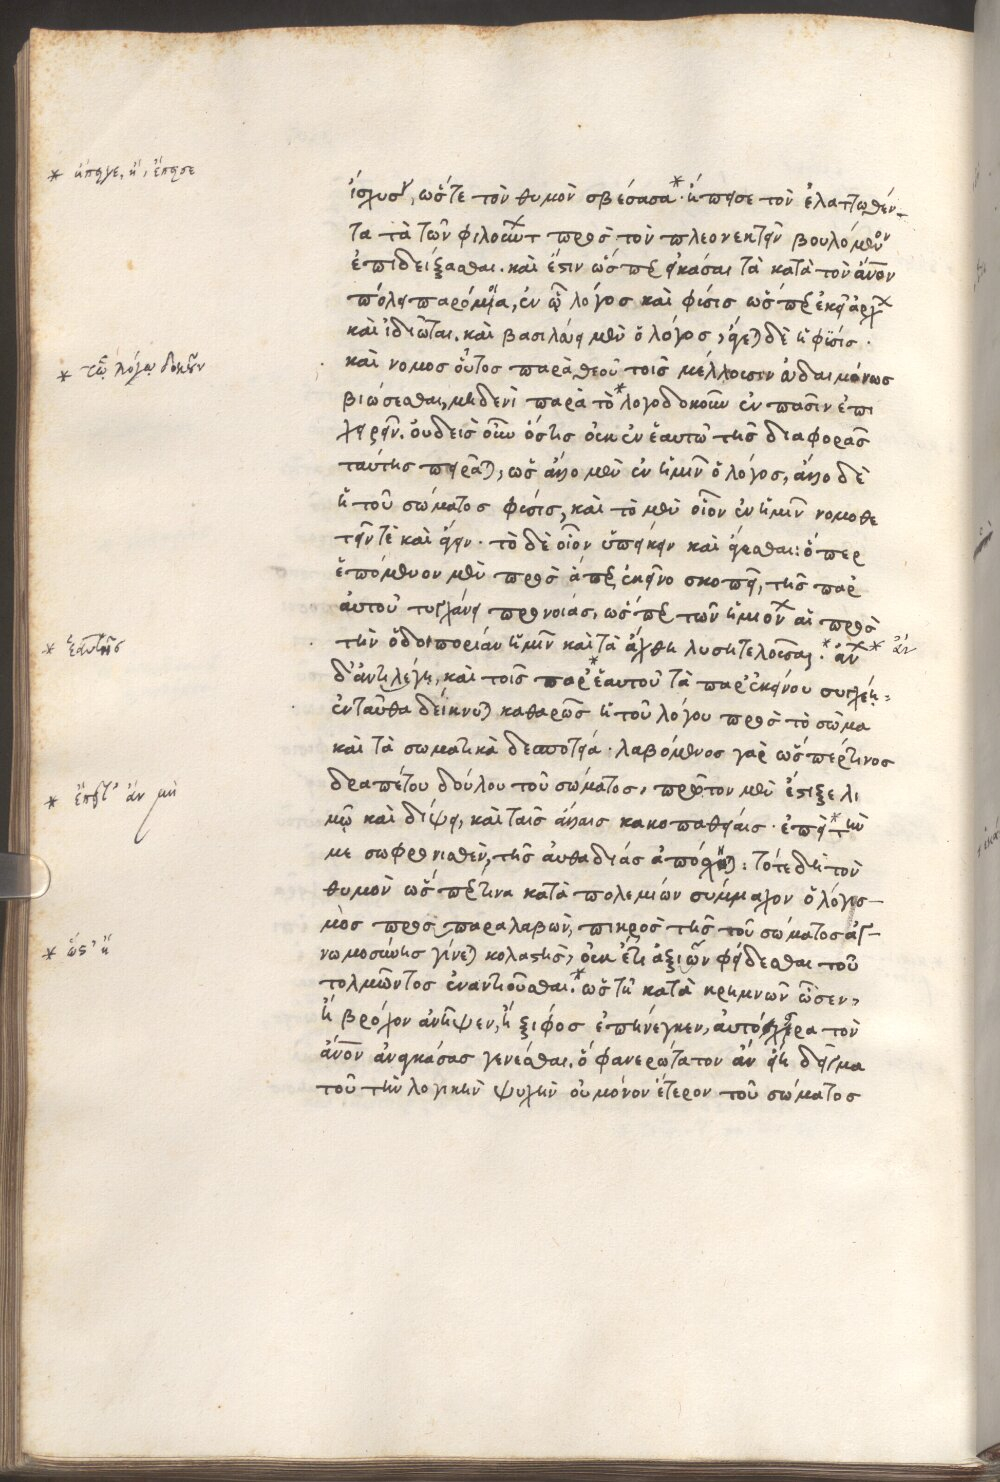 * ἤπειγε, ἢ, ἔπεισε
ἰσχυσ, ὥστε τὸν θυμὸν σβέσασα* ἤπησε τὸν ἐλαττωθέν-
τα τὰ τῶν φιλοσ πρὸς τὸν πλεονεκτεῖν βουλόμενον
ἐπιδείξασθαι. καὶ ἔστιν ὥσπερ εἰκάσαι τὰ κατὰ τὸν ἄνον
πόλει παρόμοια, ἐν ᾧ λόγος καὶ φύσις ὥσπερ ἐκεῖ ἄρχ
καὶ ἰδιῶται. καὶ βασιλεύει μὲν ὁ λόγος, ἄγεται δὲ ἡ φύσις.
* τῷ λόγῳ δοκοῦν
καὶ νόμος οὗτος παρὰ θεοῦ τοῖς μέλλουσιν εὐδαιμόνως
βιώσεσθαι, μηδενὶ παρὰ τὸ* λογοδοκοῦν ἐν πᾶσιν ἐπι
χειρεῖν. οὐδεὶς οὖν ὅστις οὐκ ἐν ἑαυτῷ τῆς διαφορᾶς
ταύτης πειρᾶται, ὡς ἄλλο μὲν ἐν ἡμῖν ὁ λόγος, ἄλλο δὲ
ἡ τοῦ σώματος φύσις, καὶ τὸ μὲν οἷον ἐν ἡμῖν νομοθε
τεῖν τὲ καὶ ἄγειν. τὸ δὲ οἷον ὑπείκειν καὶ ἄγεσθαι: ὅπερ
ἑπόμενον μὲν πρὸς ἅπερ ἐκεῖνο σκοπεῖ, τῆς παρ
αὐτοῦ τυγχάνει προνοίας, ὥσπερ τῶν ἡμιόν αἱ πρὸς
τὴν ὁδοιπορίαν ἡμῖν καὶ τὰ ἄχθη λυσιτελοῦσαι. * ἂν * ἂν
* ἑαυτῆς
δ᾽ ἀντιλέγῃ, καὶ τοῖς παρ* ἑαυτοῦ τὰ παρ᾽ ἐκείνου συγχέῃ,
ἐνταῦθα δείκνυται καθαρῶς ἡ τοῦ λόγου πρὸς τὸ σῶμα
καὶ τὰ σωματικὰ δεσποτεία. λαβόμενος γὰρ ὥσπερ τινος
δραπέτου δούλου τοῦ σώματος, πρῶτον μὲν ἔτηξε λι
* ἔπειτ᾽ ἂν μὴ
μῷ καὶ δίψῃ, καὶ ταῖς ἄλλαις κακοπαθείαις. ἐπεὶ* τὴν
με σωφρονισθὲν, τῆς αὐθαδείας ἀπόσχηται: τότε δὴ τὸν
θυμὸν ὥσπερ τινα κατὰ πολεμίων σύμμαχον ὁ λογισ-
μὸς προσπαραλαβὼν, πικρὸς τῆς τοῦ σώματος ἀγ-
* ὥς᾽ ἢ
νωμοσύνης γίνεται κολαστὴς, οὐκ ἔτι ἀξιῶν φείδεσθαι τοῦ
τολμῶντος ἐναντιοῦσθαι.* ὥς τῇ κατὰ κρημνῶν ὦσεν,
ἢ βρόχον ἀνῆψεν, ἢ ξίφος ἐπήνεγκεν, αὐτόχειρα τὸν
ἄνον ἀναγκάσας γενέσθαι. ὃ φανερώτατον ἂν εἴη δεῖγμα
τοῦ τὴν λογικὴν ψυχὴν οὐ μόνον ἕτερον τοῦ σώματος